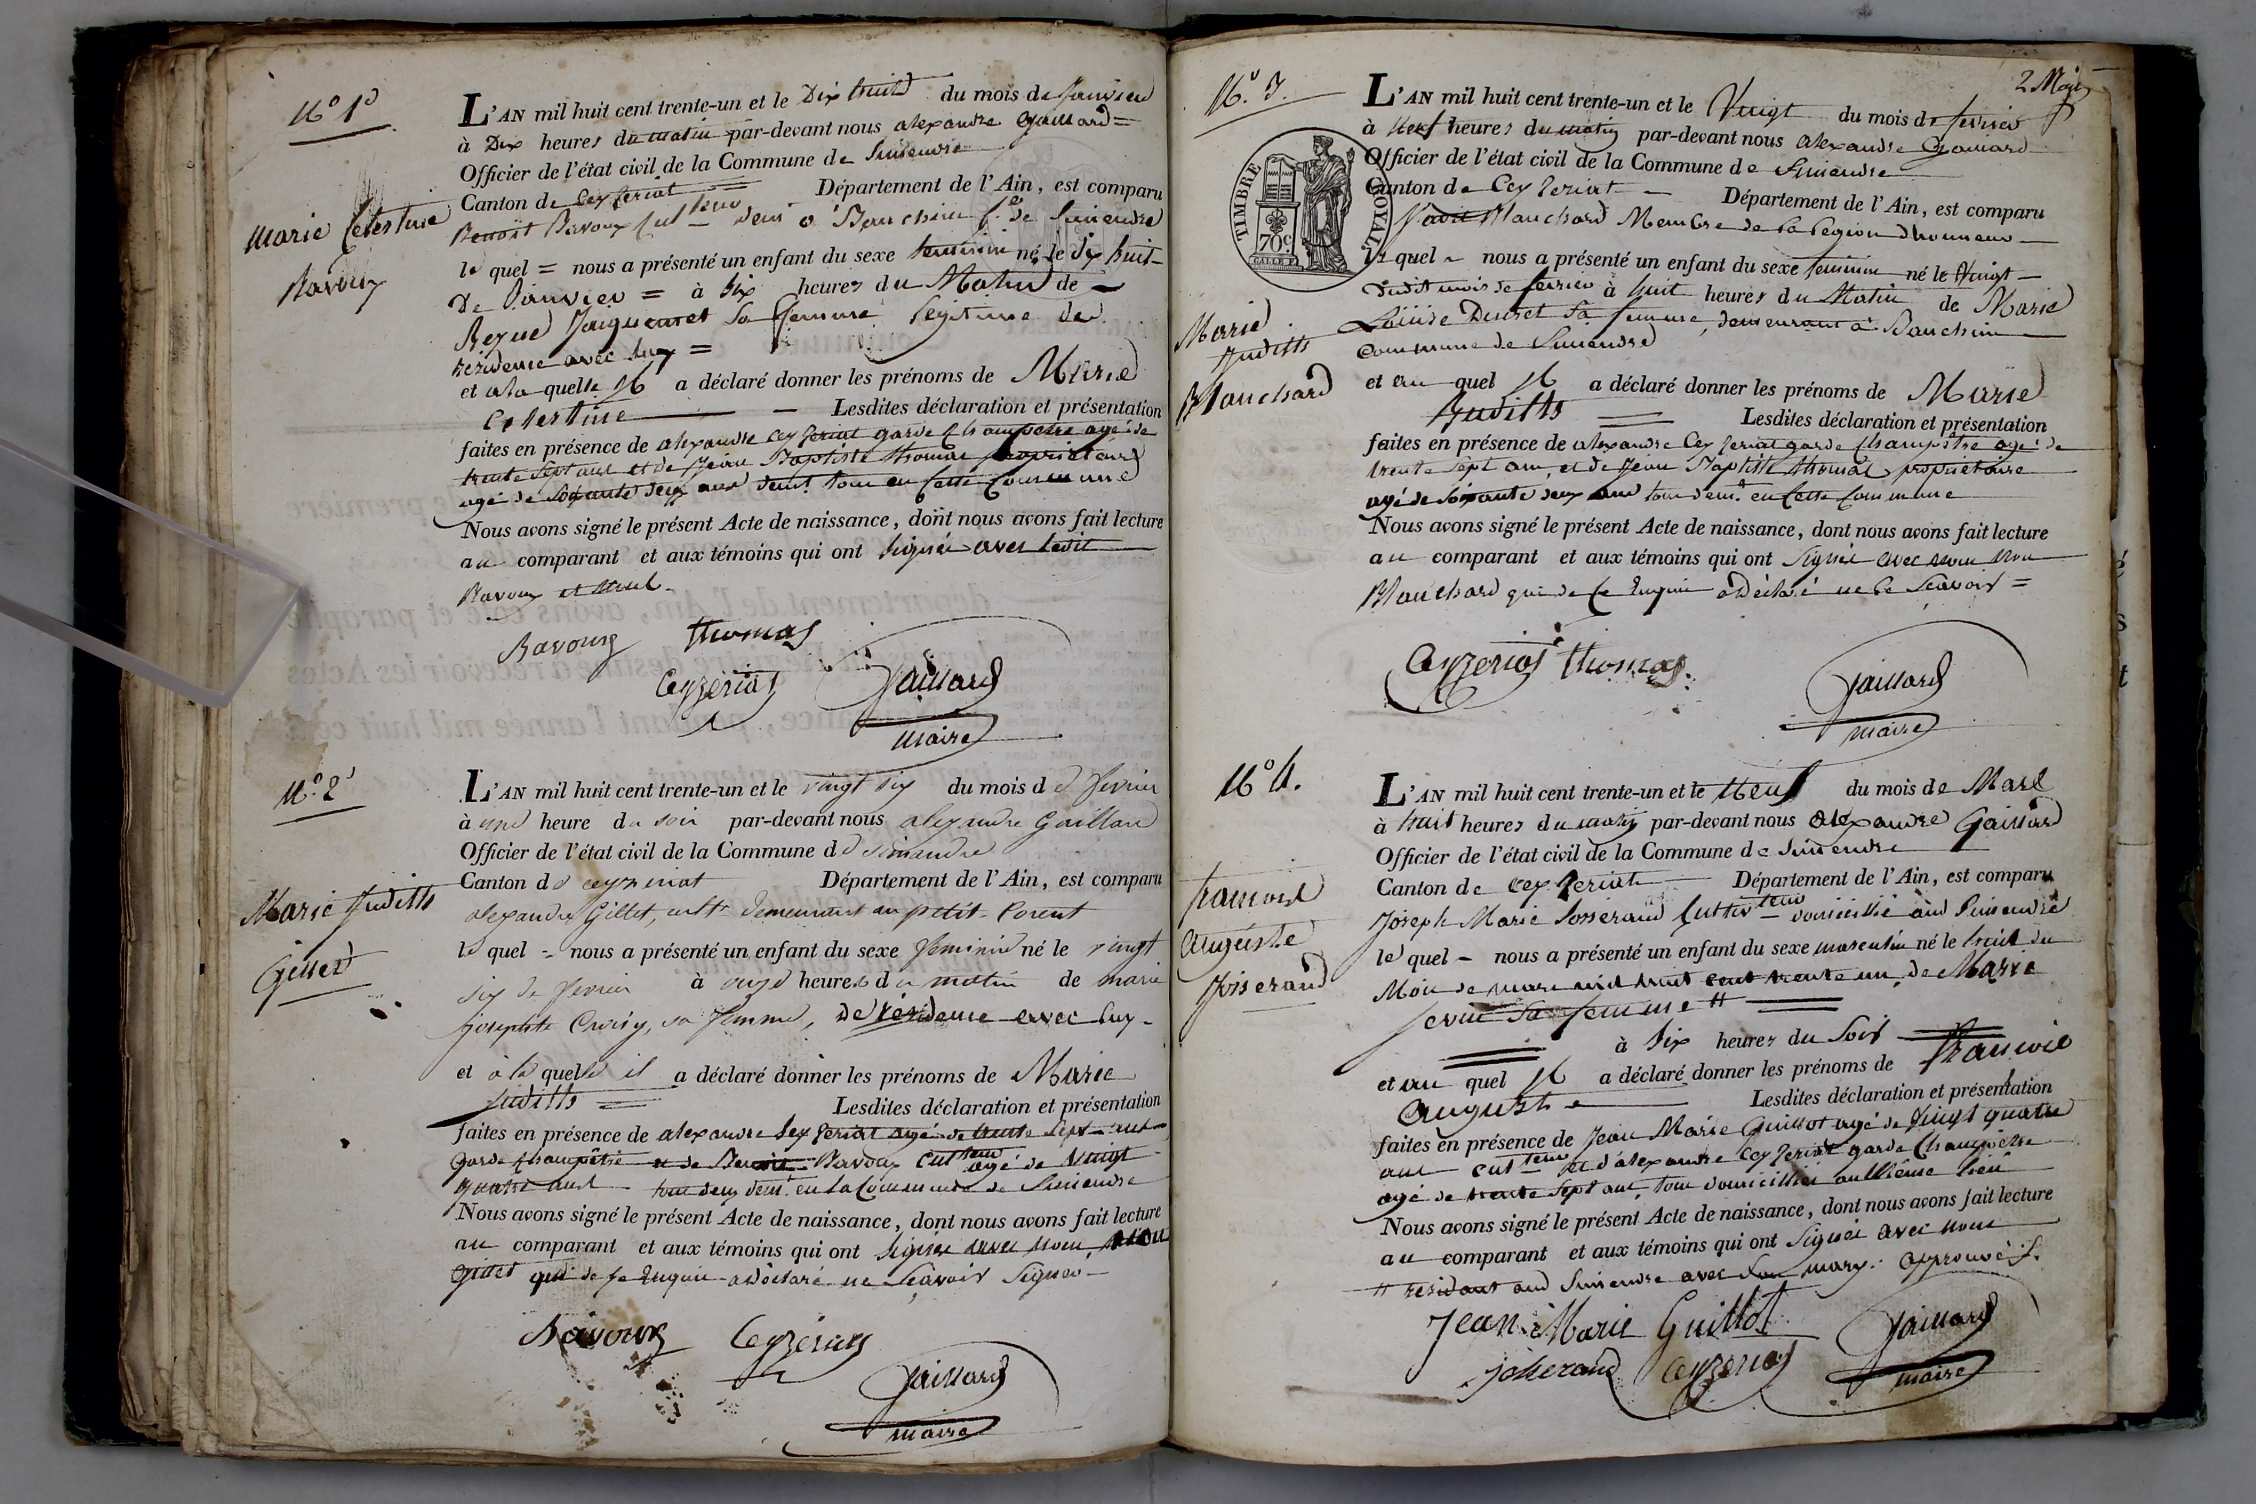 N.o 1.er
Marie Celestine
Ravoux
L'AN mil huit cent trente-un et le Dix huit du mois de Janvier
à Dix heures du matin par-devant nous alexandre Gaillard =
Officier de l'état civil de la Commune de Simendre
Canton de Ceyzeriat = Département de l'Ain, est comparu
Benoit Ravoux Cult teur dem t à Banchin C.e de Simendre
le quel = nous a présenté un enfant du sexe feminin né le dix huit
De Janvier = à six heures du Matin de
Reyne Jaiguenet Sa femme legitime de
residence avec luy =
et a la quelle il a déclaré donner les prénoms de Marie
Celestine — Lesdites déclaration et présentation
faites en présence de alexandre Ceyzeriat garde Champetre agé de
trente sept ans et de Jean Baptiste thomas propriétaire
agé de soixante deux ans demt. tous en Cette Commune
Nous avons signé le présent Acte de naissance, dont nous avons fait lecture
au comparant et aux témoins qui ont signés avec ledit
Ravoux et nous.
Ravoux thomas
Ceyzeriat Gaillard
maire
N.o 2
Marie Judith
Gillet
L'AN mil huit cent trente-un et le vingt six du mois de fevrier
à une heure du soir par-devant nous alexandre Gaillard
Officier de l'état civil de la Commune de simandre
Canton de ceyzeriat Département de l'Ain, est comparu
alexandre Gillet, cultr demeurant au petit-Corent
le quel = nous a présenté un enfant du sexe feminin né le vingt
six de fevrier à onze heures du matin de marie
josephte Croisy, sa femme, de résidence avec luy -
et à la quelle il a déclaré donner les prénoms de Marie
Judith = Lesdites déclaration et présentation
faites en présence de alexandre Ceyzeriat agé de trente sept ans
garde champêtre et de Benoit Ravoux Cult teur agé de Vingt
quatre ans tous deux demt. en la Commune de Simendre
Nous avons signé le présent Acte de naissance, dont nous avons fait lecture
au comparant et aux témoins qui ont signés avec nous, non
Gillet qui de ce Enquis a déclaré ne Sçavoir Signer -
Ravoux Ceyzeriat
Gaillard
maire
2
N.o 3.
TIMBRE ROYAL
70 c
Marie
Judith
Blanchard
L'AN mil huit cent trente-un et le Vingt du mois de fevrier
à neuf heures du matin par-devant nous alexandre Gaillard
Officier de l'état civil de la Commune de Simendre
Canton de Ceyzeriat - Département de l'Ain, est comparu
Blanchard Membre de la Legion dhonneur
le quel ~ nous a présenté un enfant du sexe feminin né le Vingt
dudit mois de fevrier à huit heures du Matin de Marie
Louise Ducret Sa femme, demeurant à Banchin
commune de Simendre
et au quel il a déclaré donner les prénoms de Marie
Judith = Lesdites déclaration et présentation
faites en présence de alexandre Ceyzeriat garde Champêtre agé de
trente sept ans, et de Jean Baptiste thomas propriétaire
agé de soixante deux ans tous demt. en Cette Commune
Nous avons signé le présent Acte de naissance, dont nous avons fait lecture
au comparant et aux témoins qui ont signés avec nous non
Blanchard qui de Ce Enquis a déclaré ne le Sçavoir =
Ceyzeriat thomas
Gaillard
maire
N.o 4.
francois
auguste
Josserand
L'AN mil huit cent trente-un et le Neuf du mois de Mars
à huit heures du matin par-devant nous alexandre Gaillard
Officier de l'état civil de la Commune de Simendre
Canton de Ceyzeriat Département de l'Ain, est comparu
Joseph Marie Josserand Cultiv teur domicilié aud Simendre
le quel - nous a présenté un enfant du sexe masculin né le huit du
Mois de mars mil huit cent trente un, de Marie
Sevin Sa femme #
à six heures du Soir
et au quel il a déclaré donner les prénoms de francois
auguste - Lesdites déclaration et présentation
faites en présence de Jean Marie Guillot agé de vingt quatre
ans cult teur et d'alexandre Ceyzeriat garde Champêtre
agé de trente sept ans, tous domiciliés au Même lieu
Nous avons signé le présent Acte de naissance, dont nous avons fait lecture
au comparant et aux témoins qui ont Signés avec nous
# residant aud Simendre avec son mary. approuvé
Jean Marie Guillot Gaillard
josserand Ceyzeriat maire